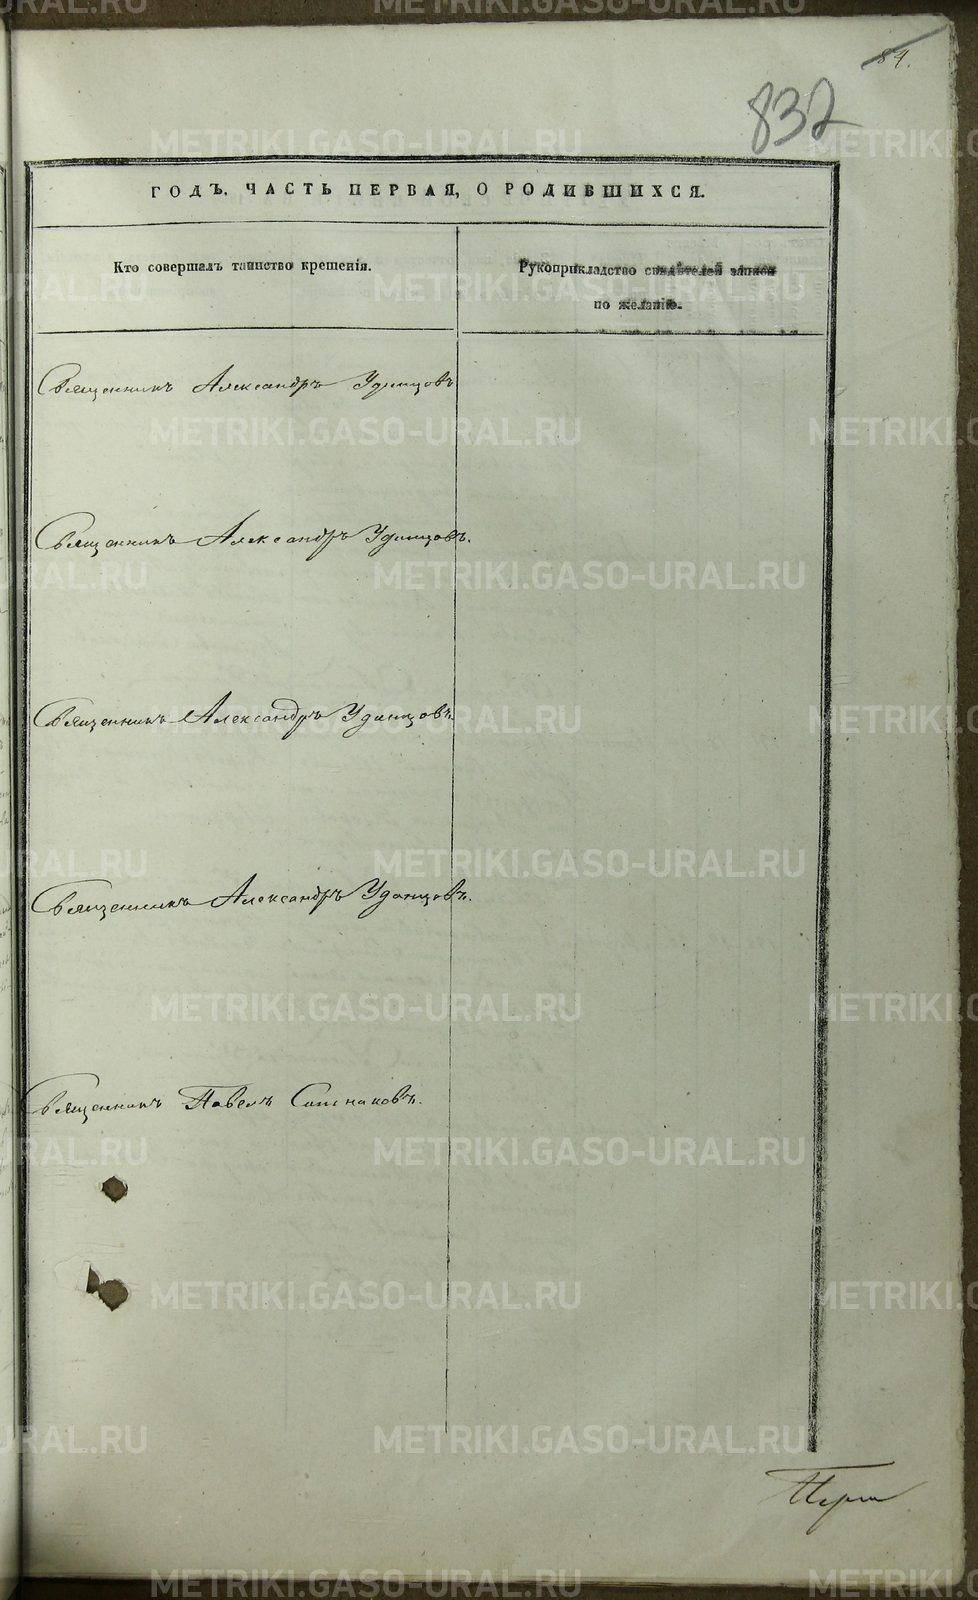 84.
832
ГОДЪ. ЧАСТЬ ПЕРВАЯ, О РОДИВШИХСЯ.
Кто совершалъ таинство крещенія.
Рукоприкладство свидѣтелей записи
по желанію.
Священникъ Александръ Удинцовъ
Священникъ Александръ Удинцовъ.
Священникъ Александръ Удинцовъ.
Священникъ Александръ Удинцовъ.
Священникъ Павелъ
METRIKI.GASO-URAL.RU